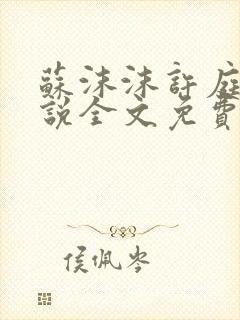 蘇沫沫許庭
說全文免費
侯佩岑